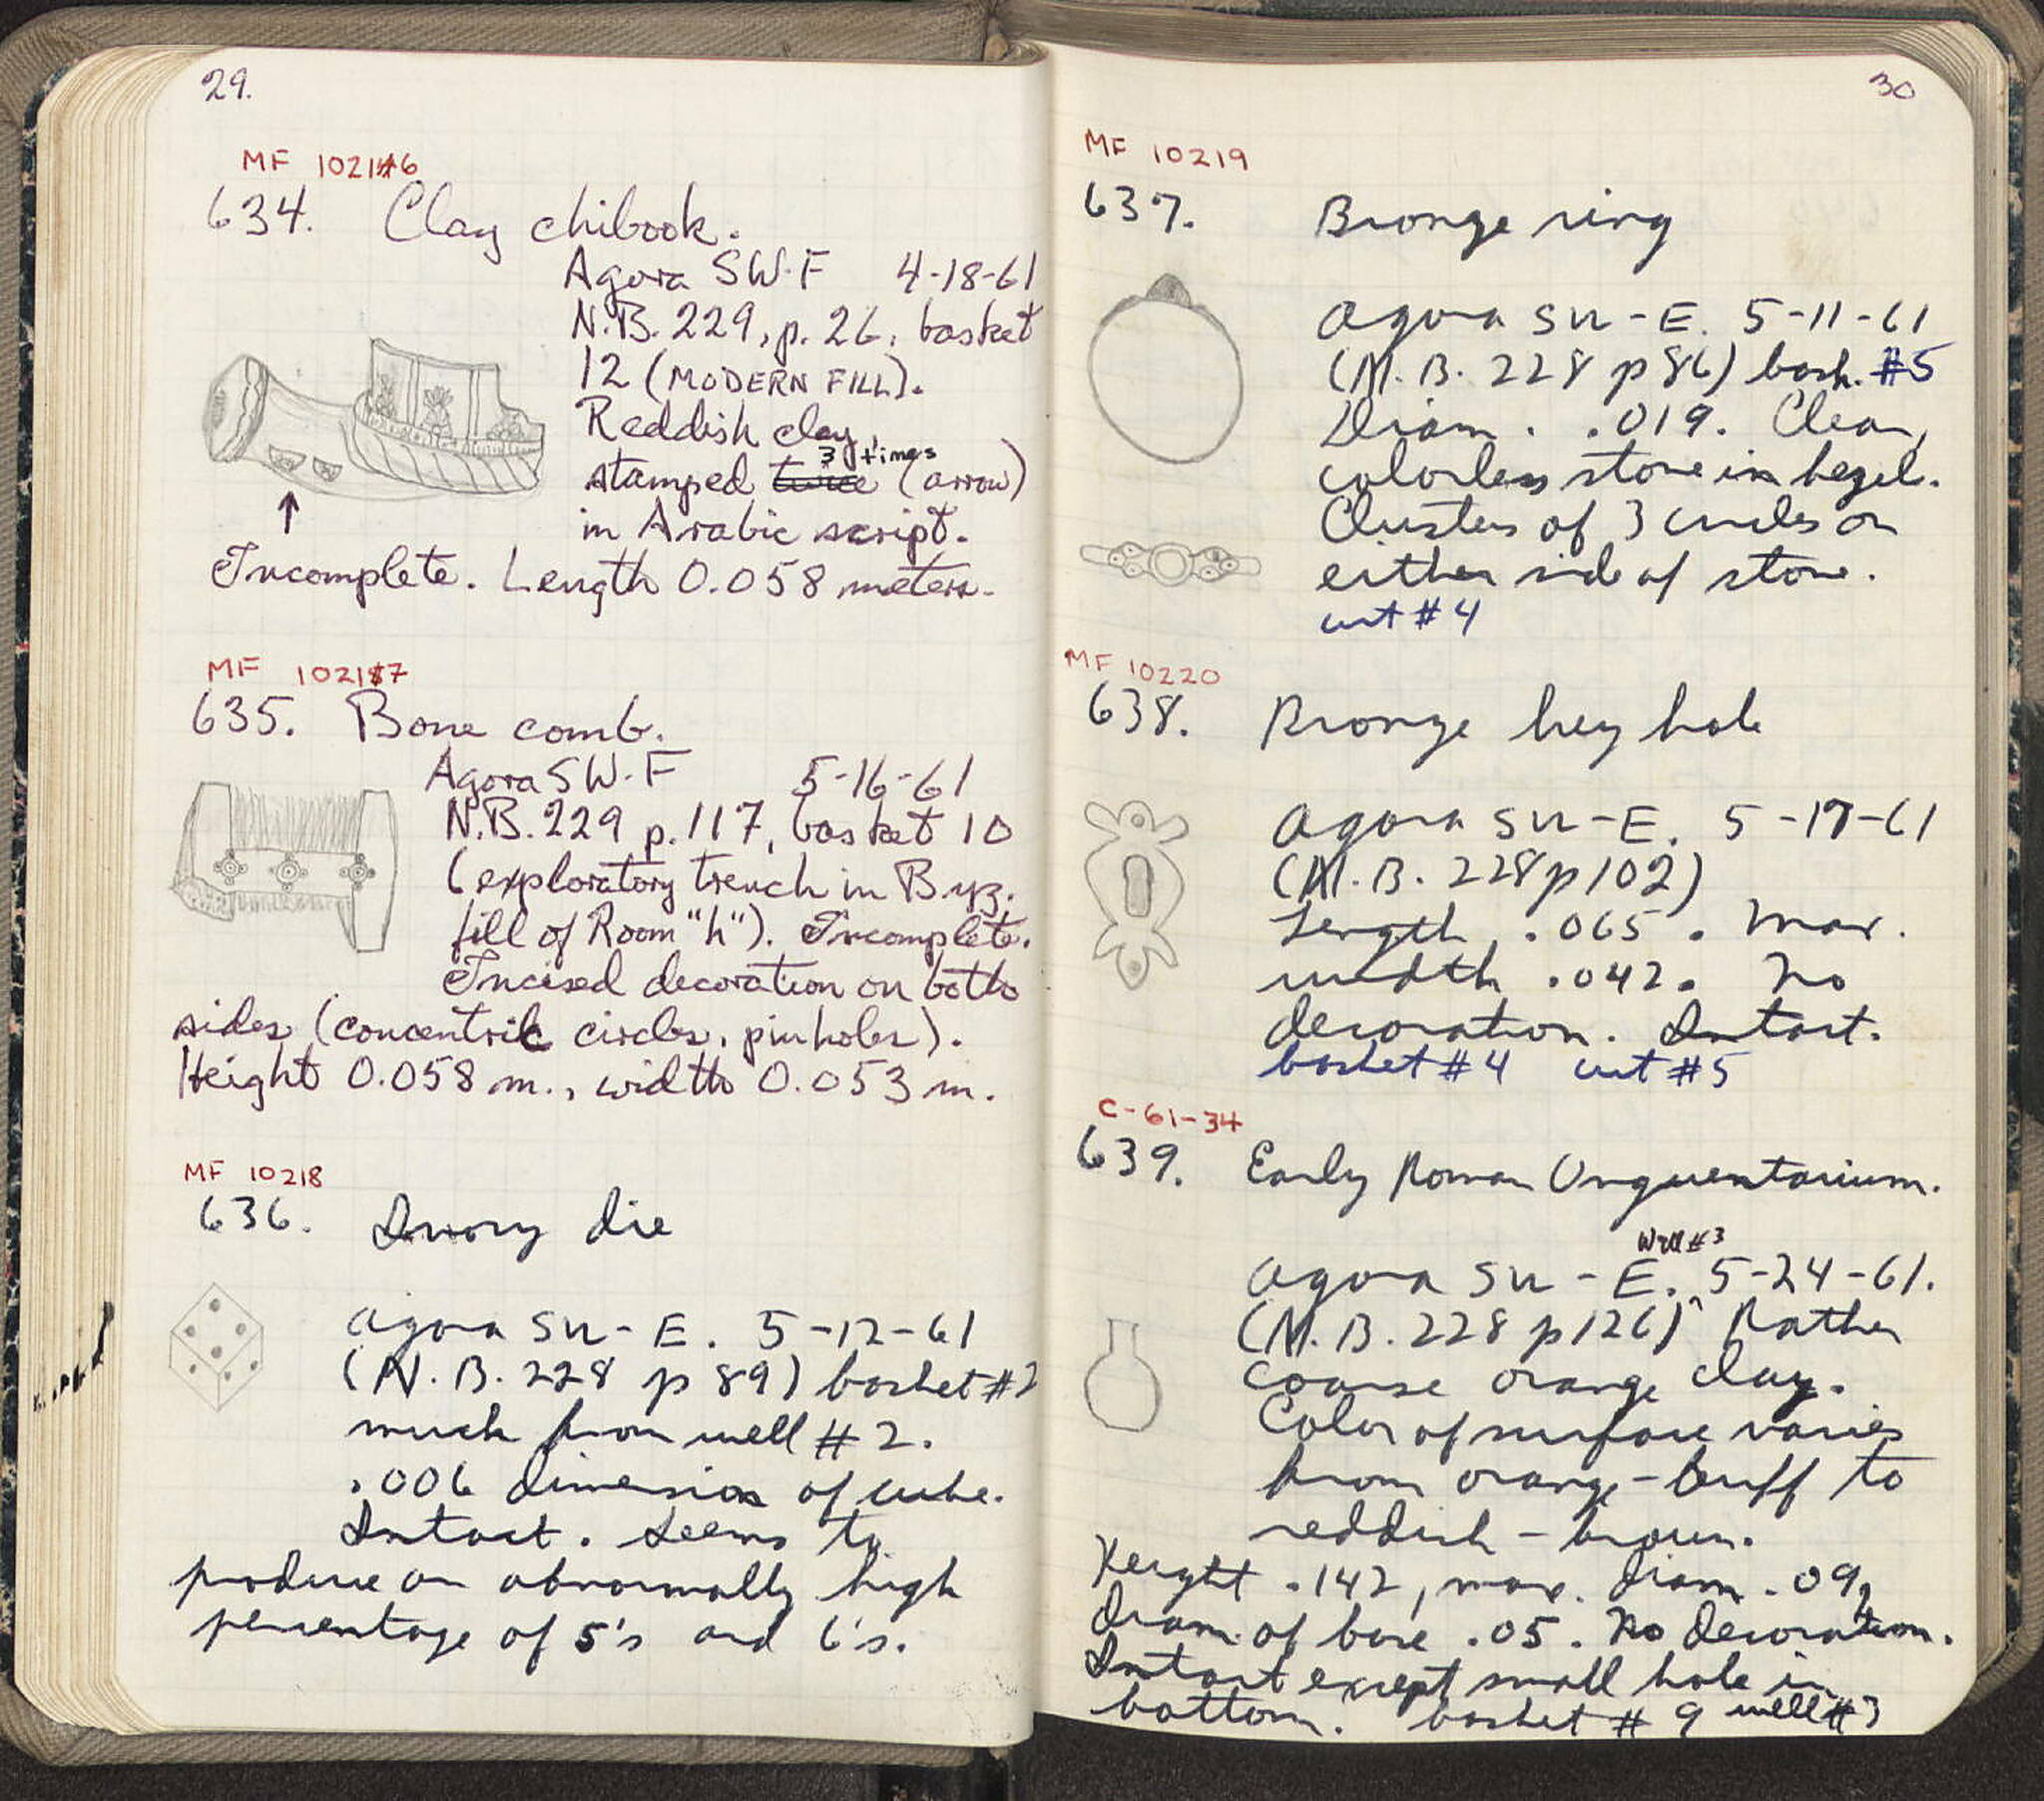 29.
MF 10216
634. Clay chibook.
Agora SW-F 4-18-61
N.B. 229, p. 26, basket
12 (MODERN FILL).
Reddish clay,
3 times
stamped twice (arrow)
in Arabic script.
Incomplete. Length 0.058 meters.
MF 10217
635. Bone comb.
Agora SW-F 5-16-61
N.B. 229 p. 117, basket 10
(exploratory trench in Byz.
fill of Room "h"). Incomplete.
Incised decoration on both
sides (concentric circles, pinholes).
Height 0.058 m., width 0.053 m.
MF 10218
636. Ivory die
Agora SW-E. 5-12-61
(N.B. 228 p 89) basket #2
muck from well #2.
.006 dimension of cube.
Intact. Seems to
produce an abnormally high
percentage of 5's and 6's.
30
MF 10219
637. Bronze ring
Agora SW-E. 5-11-61
(N.B. 228 p 86) bask. #5
Diam. .019. Clear,
colorless stone in bezel.
Clusters of 3 circles on
either side of stone.
cut #4
MF 10220
638. Bronze key hole
Agora SW-E. 5-17-61
(N.B. 228 p 102)
Length .065. Max.
width .042. No
decoration. Intact.
basket #4 cut #5
C-61-34
639. Early Roman Unguentarium.
Well #3
Agora SW-E. 5-24-61.
(N.B. 228 p 126) Rather
coarse orange clay.
Color of surface varies
from orange-buff to
reddish-brown.
Height .142, max. diam. .09,
diam. of base .05. No decoration.
Intact except small hole in
bottom. basket #9 well #3